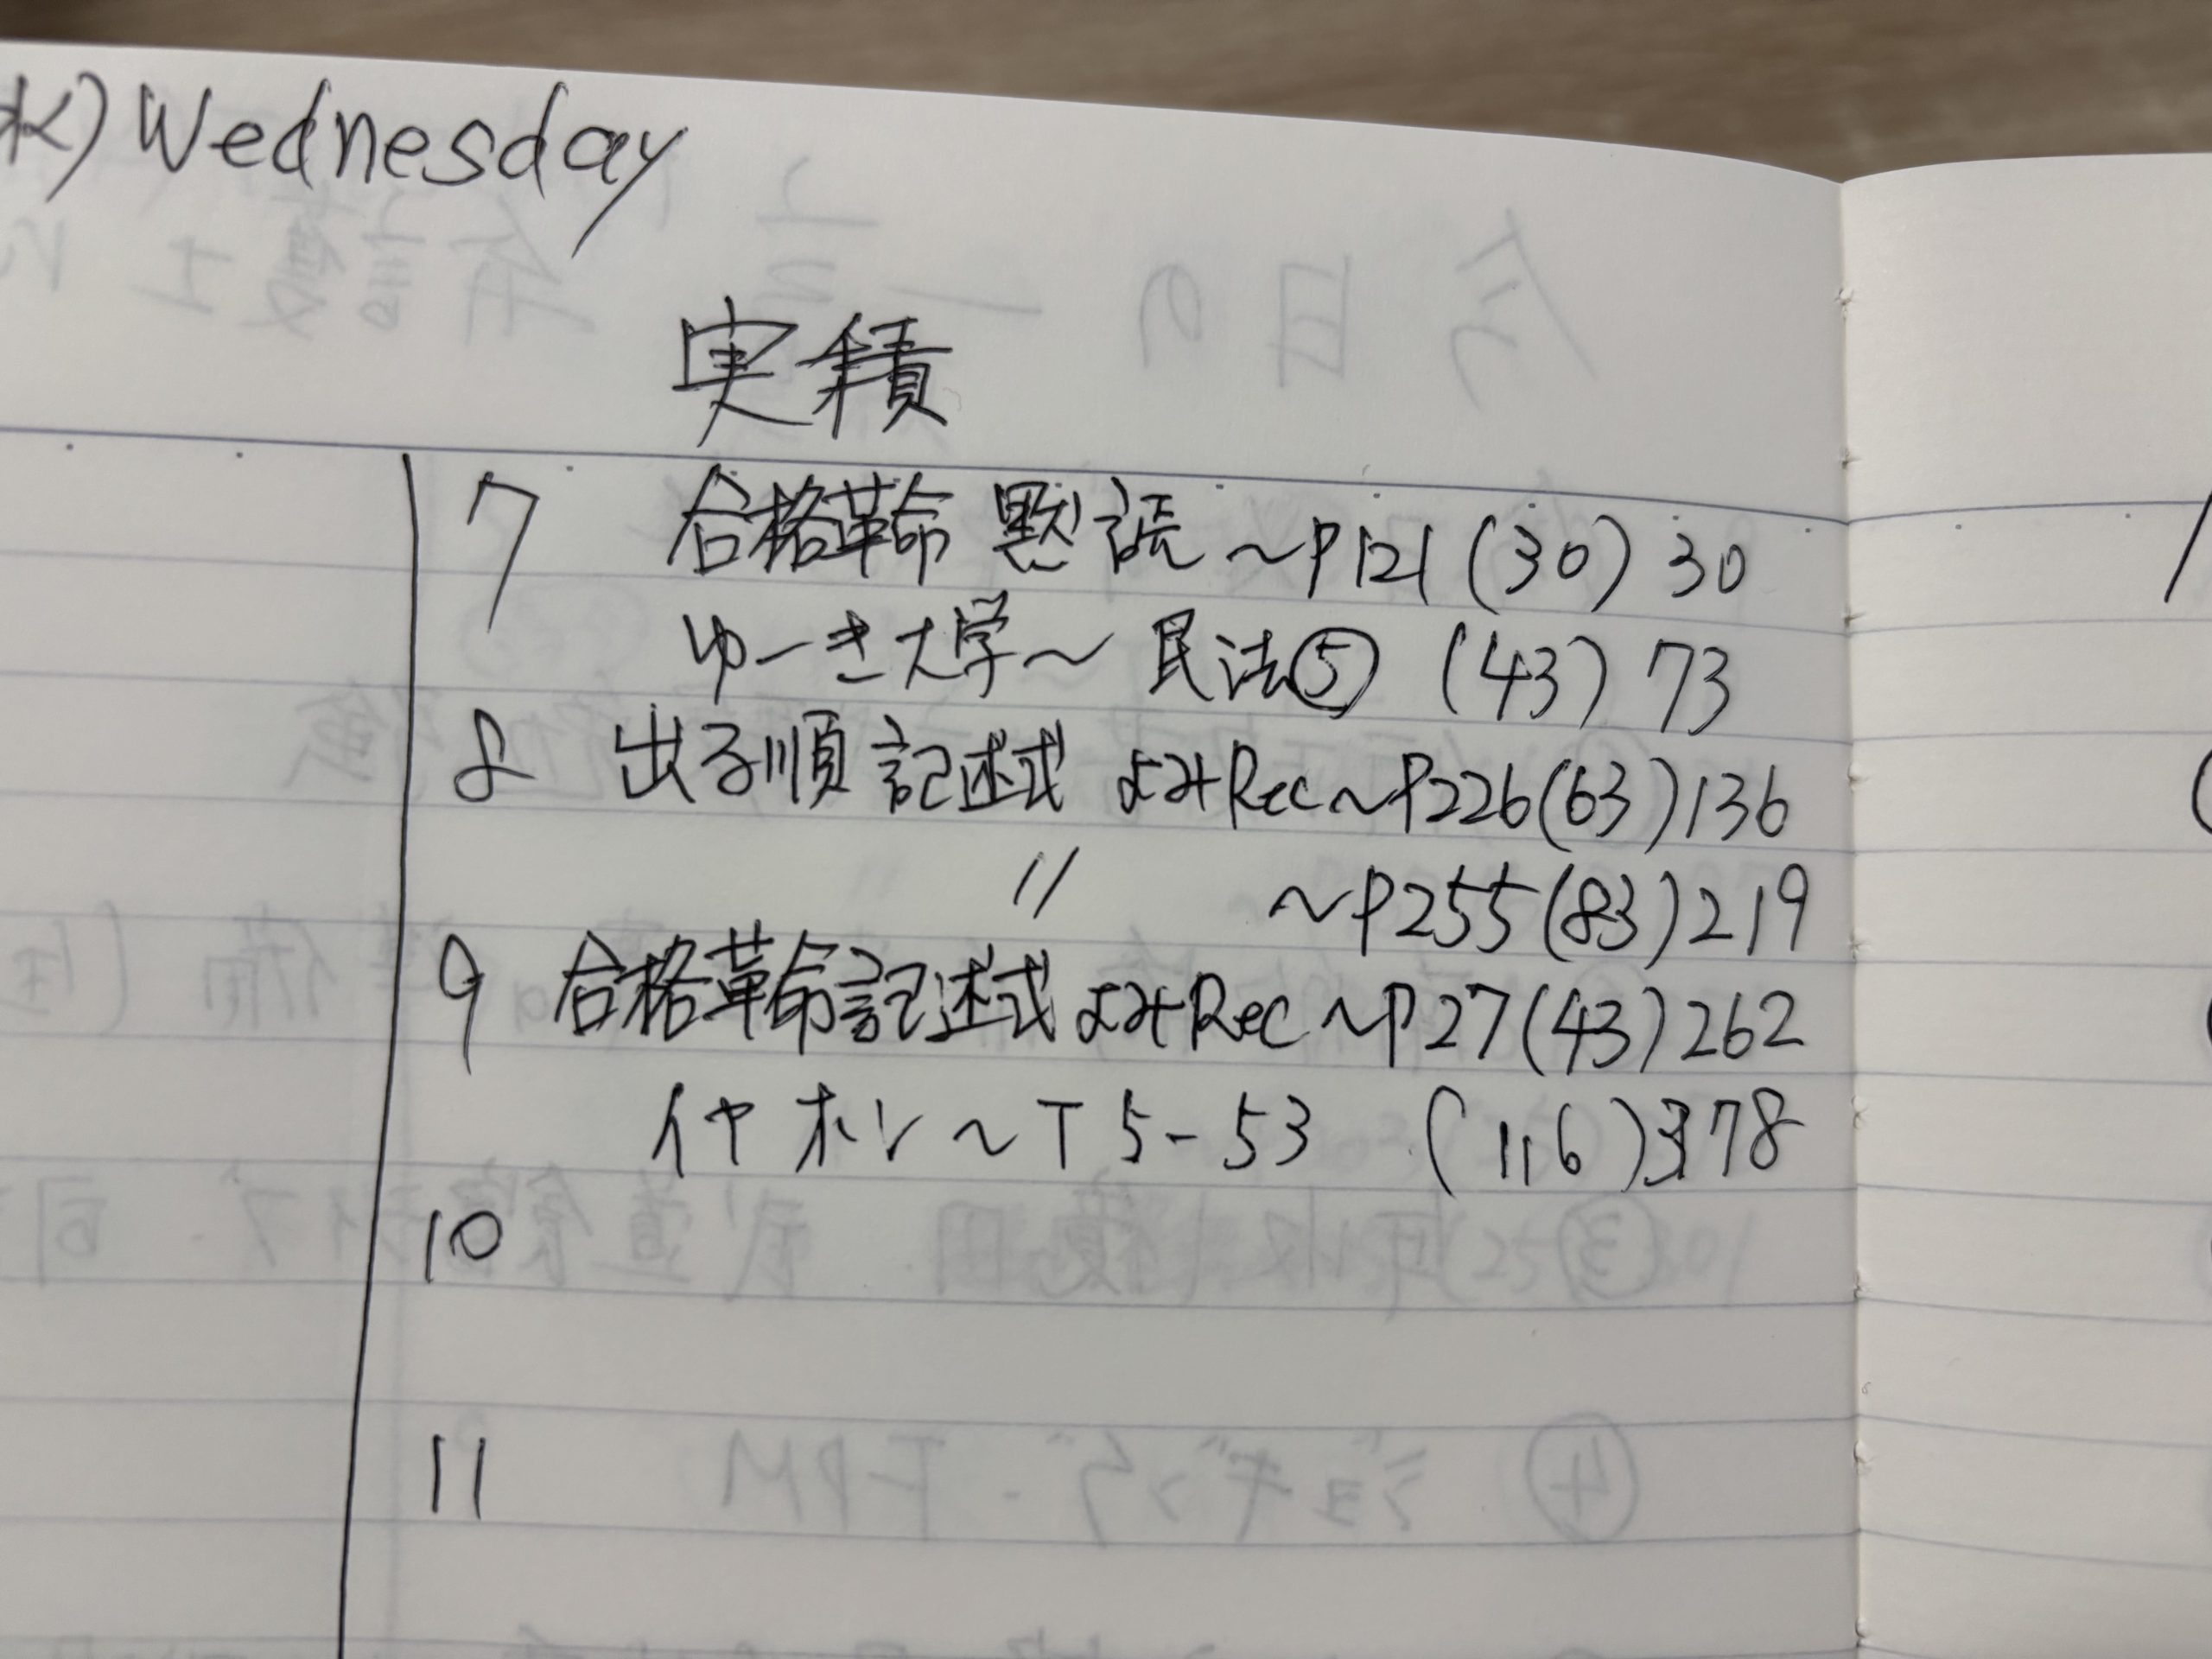 水) Wednesday
実積
7 合格革命 黙読 ~P121 (30) 30
ゆーき大学~ 民法⑤ (43) 73
8 出る順 記述式 よみRec~P226(63)136
〃 ~P255(83)219
9 合格革命記述式 よみRec ~P27(43)262
イヤホン~T5-53 (116)378
10
11